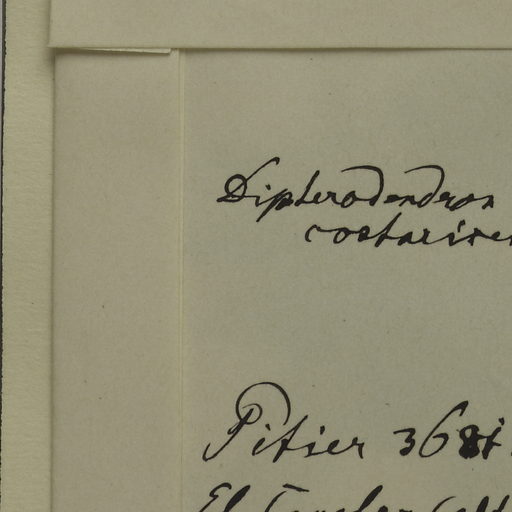 Dipterodendron
costaricen
Pitier
El